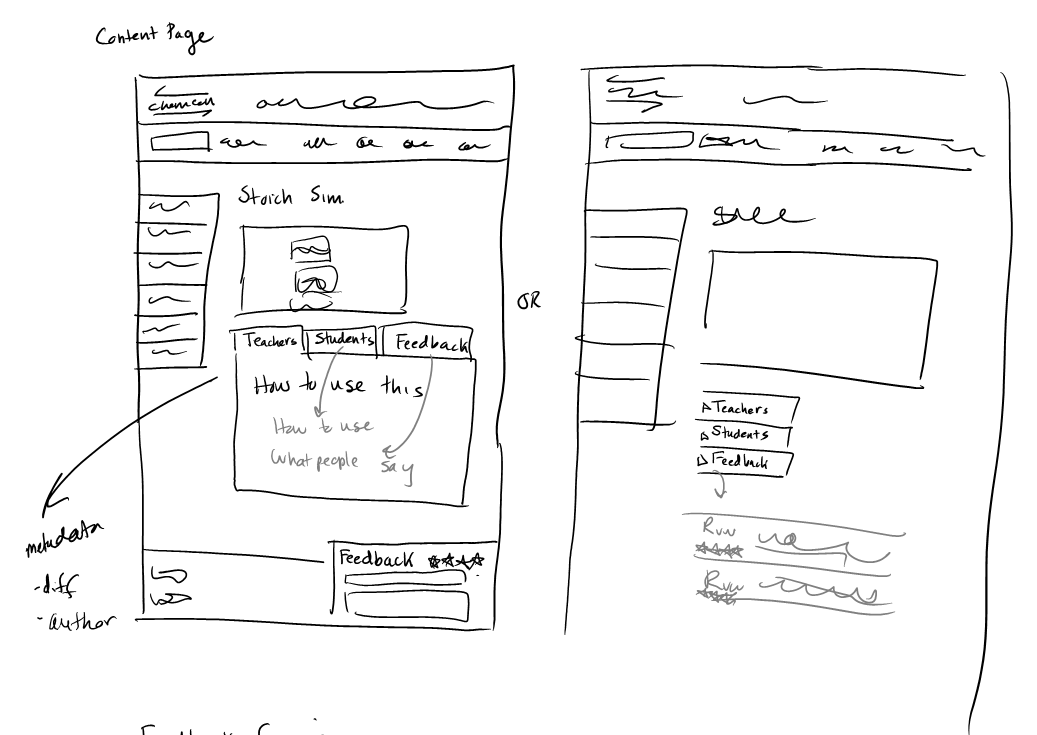 Content Page
Stoich Sim
Teachers Students Feedback
How to use this
How to use
What people say
metadata
-diff
-author
Feedback
OR
Teachers
Students
Feedback
Rvw
Rvw